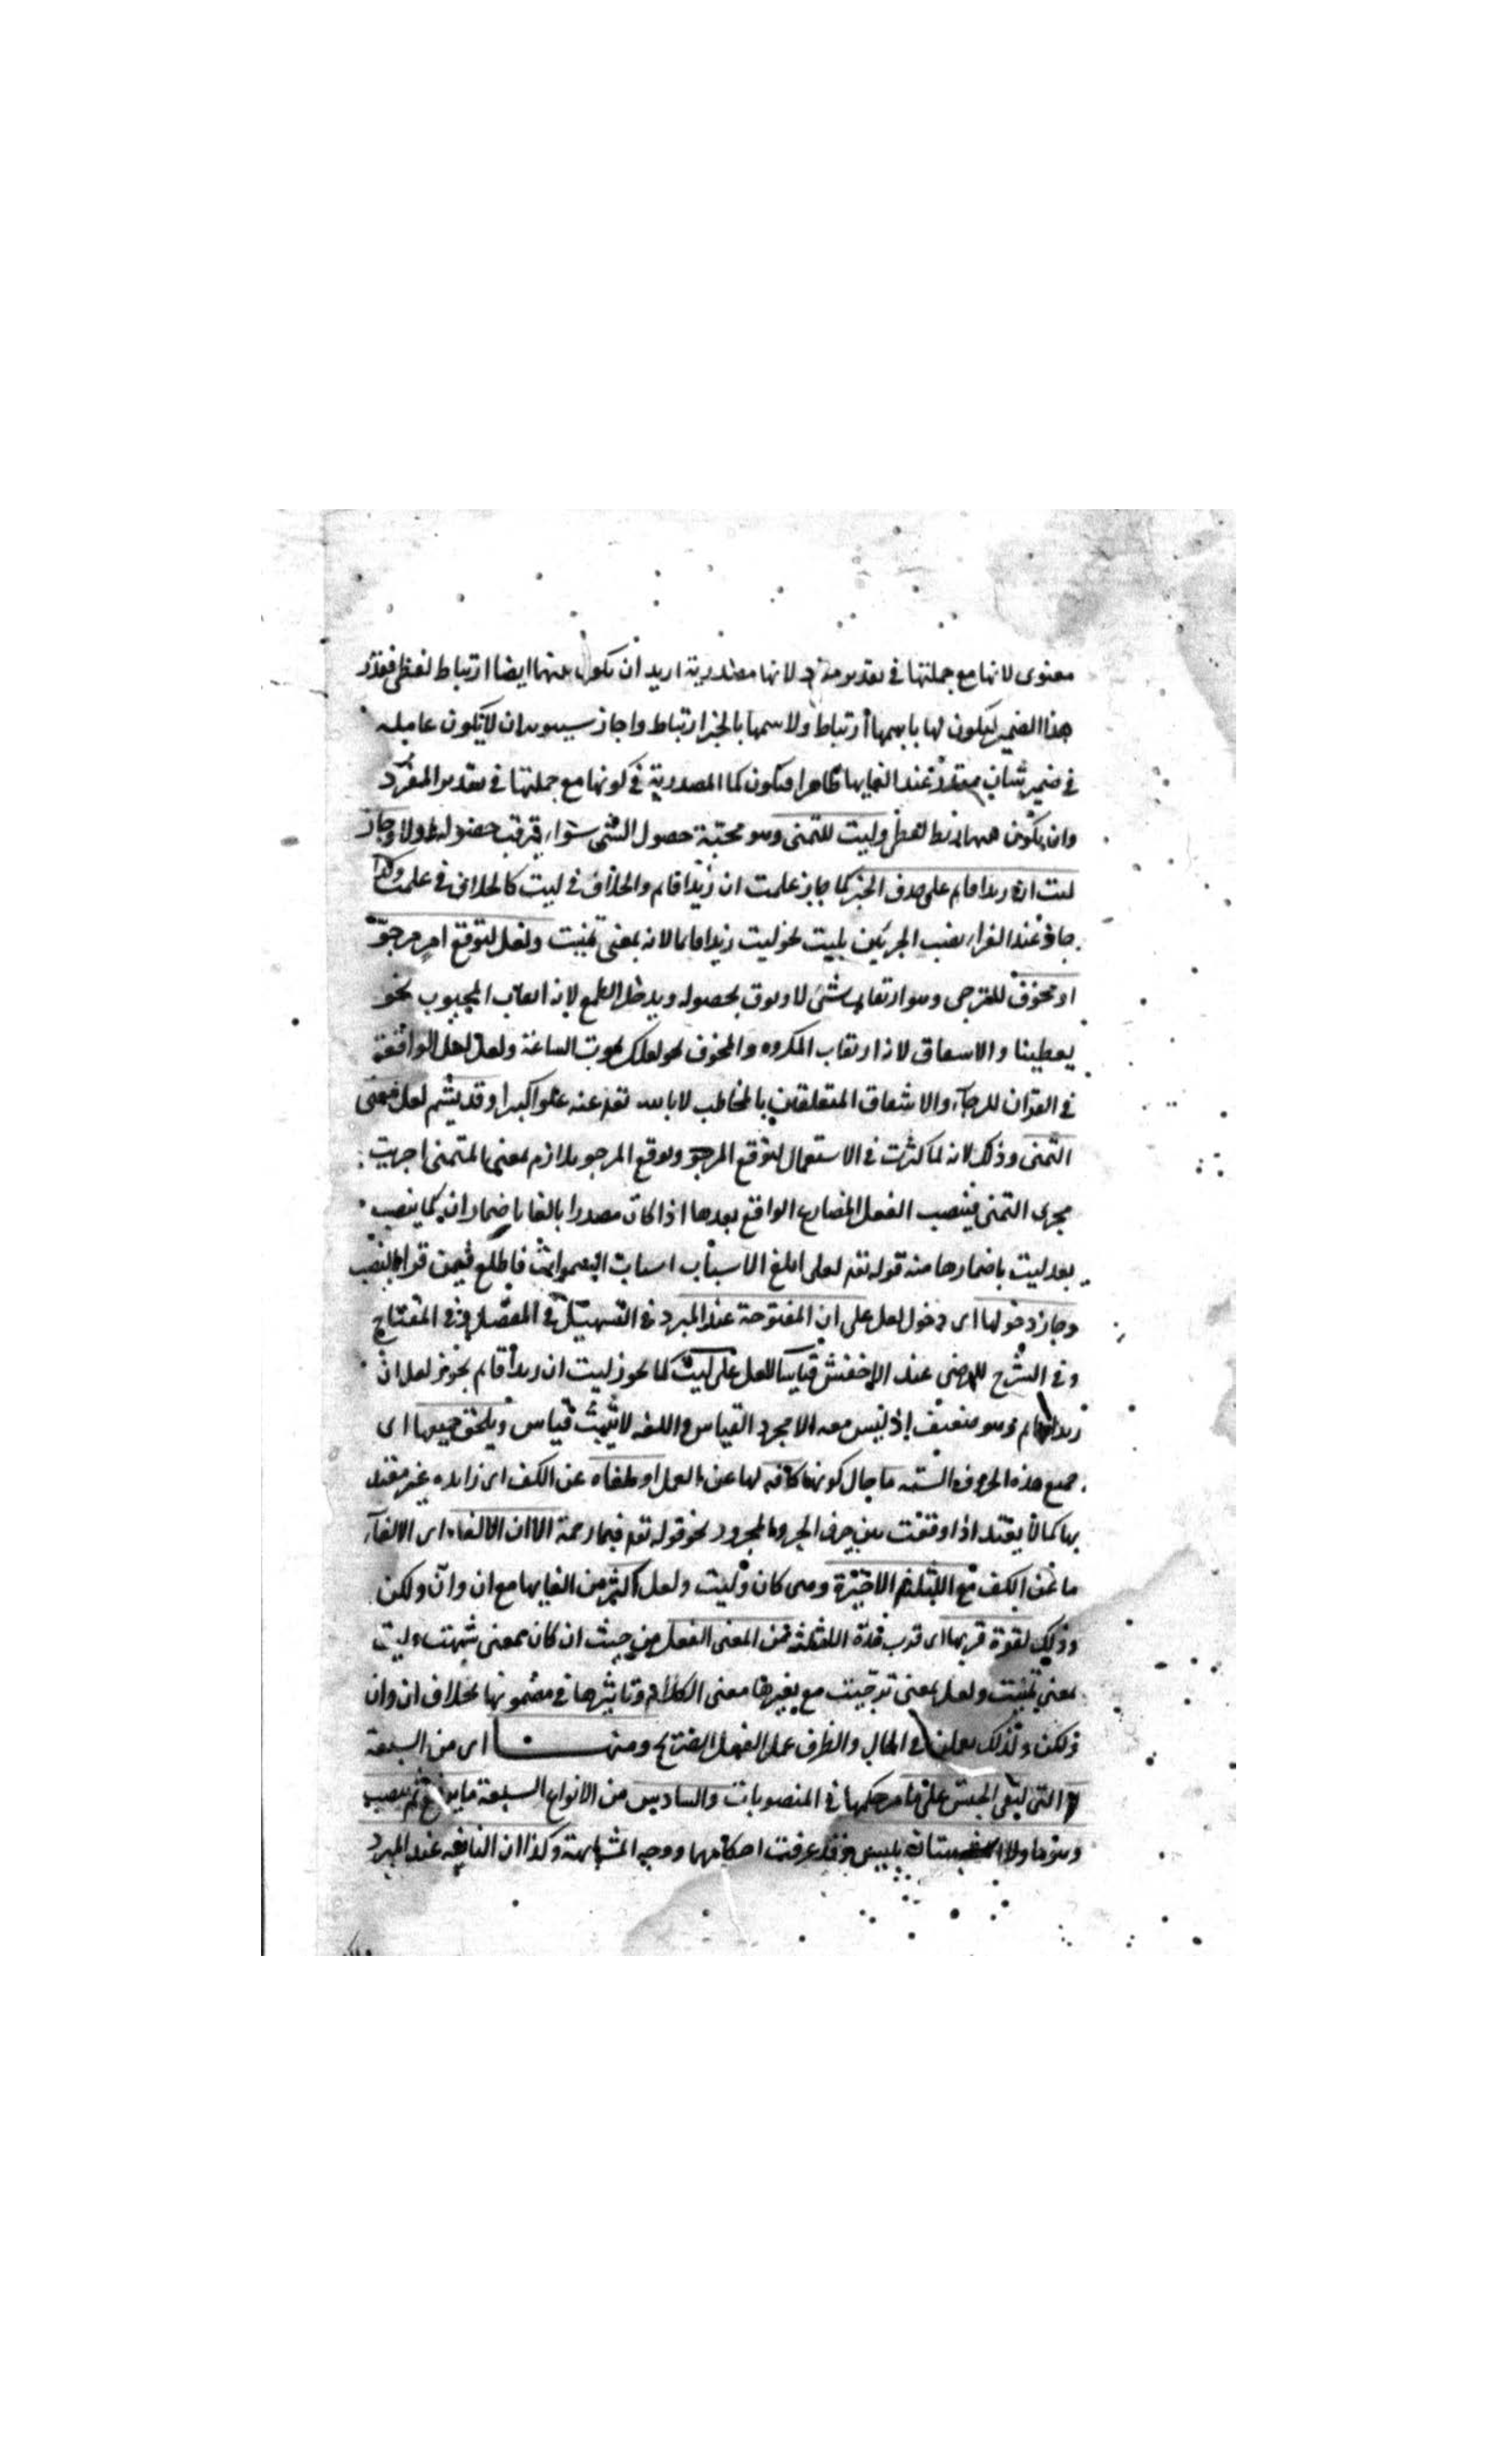 معنوى لانها مع جملتها فى تقدير مفرد لانها مصدرية اريد ان يكون بينهما ايضا ارتباط لفظى فقدر
هذا الضمير ليكون لها باسمها ارتباط ولاسمها بالخبر ارتباط واجاز سيبويه ان لا يكون عاملة
فى ضمير شان مقدر عند الغايها ظاهرا فتكون كما المصدرية فى كونها مع جملتها فى تقدير المفرد
وان يكون هناك ربط لفظى وليت للتمنى وهو محبة حصول الشى سواء ترقب حصوله اولا وجاز
ليت ان زيدا قايم على حذف الخبر كما جاز علمت ان زيدا قام والخلاف فى ليت كالخلاف فى علمت وكذا
جاز عند الفراء نصب الجزئين بليت نحو ليت زيدا قايما لانه بمعنى تمنيت ولعل لتوقع امر مرجو
او مخوف للترجى وهو ارتقاب شئ لا وثوق بحصوله ويدخل الطمع لانه ارتقاب المحبوب نحو
يعطينا والاشفاق لانه ارتقاب المكروه والمخوف نحو لعلك تموت الساعة ولعل لعل الواقعة
فى القرآن للرجاء والاشفاق المتعلقان بالمخاطب لا بالله تعم عنه علوا كبيرا وقد يشم لعل معنى
التمنى وذلك لانه لما كثرت فى الاستعمال لتوقع المرجو وتوقع المرجو ملازم لمعنى المتمنى اجريت
مجرى التمنى فينصب الفعل المضارع الواقع بعدها اذا كان مصدرا بالفا باضمار ان كما ينصب
بعد ليت باضمارها منه قوله تعم لعلى ابلغ الاسباب اسباب السموات فاطلع فيمن قرا بالنصب
وجاز دخولها اى دخول لعل على ان المفتوحة عند المبرد فى التسهيل فى المفصل وفى المفتاح
وفى الشرح للرضى عند الاخفش قياسا للعل على ليت كما يجوز ليت ان زيدا قايم يجوز لعل ان
زيدا قايم وهو ضعيف إذ ليس معه الا مجرد القياس واللغه لا يثبت قياس ويلحق جميعها اى
جميع هذه الحروف الستة ما حال كونها كافه لها عن العمل او ملغاه عن الكف اى زايده غير معتد
بها كما لا يعتد اذا وقعت بين حرف الجر والمجرور نحو قوله تعم فبما رحمة الا ان الالغاء اى الالغاء
ما عن الكف مع الثلثة الاخيرة وهى كان وليت ولعل اكثر من الغايها مع ان وان ولكن
وذلك لقوة قربها اى قرب هذه الثلثة من المعنى الفعل من حيث ان كان بمعنى شبهت وليت
بمعنى تمنيت ولعل بمعنى ترجيت مع تغيرها معنى الكلام وتاثيرها فى مضمونها بخلاف ان وان
ولكن ولذلك يعملن فى الحال والظرف عمل الفعل الصريح ومنها اى من السبعة
لا التى لنفى الجنس على ما مر حكمها فى المنصوبات والسادس من الانواع السبعة ما يرفع ثم ينصب
وهو ما ولا المشبهتان بليس وقد عرفت احكامهما ووجه المشابهة وكذا ان النافيه عند المبرد